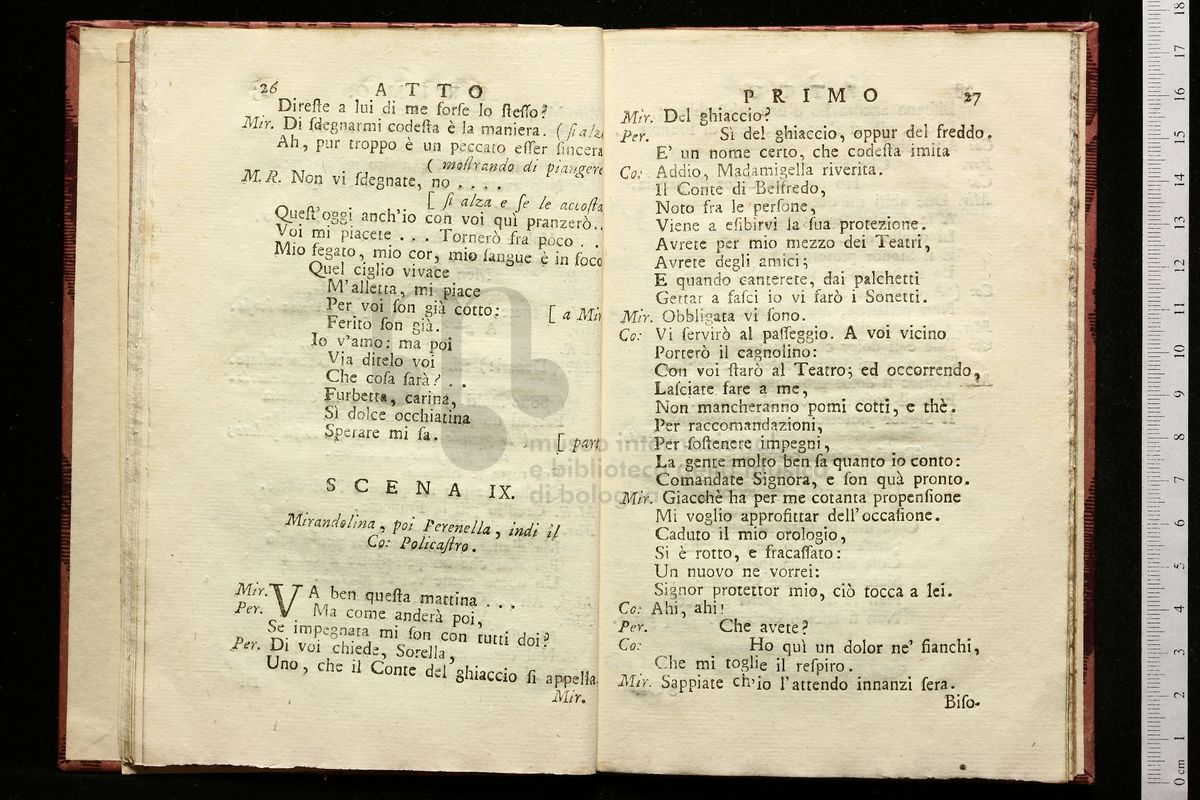 26 ATTO
Direſte a lui di me forſe lo ſteſſo?
Mir. Di ſdegnarmi codeſta è la maniera. (ſi alza
Ah, pur troppo è un peccato eſſer ſincera
( moſtrando di piangere
M. R. Non vi ſdegnate, no . . . .
[ ſi alza e ſe le accoſta
Queſt'oggi anch'io con voi quì pranzerò..
Voi mi piacete . . . Tornerò fra poco . .
Mio fegato, mio cor, mio ſangue è in foco
Quel ciglio vivace
M'alletta, mi piace
Per voi ſon già cotto: [ a Mir
Ferito ſon già.
Io v'amo: ma poi
Via ditelo voi
Che coſa ſarà? . .
Furbetta, carina,
Sì dolce occhiatina
Sperare mi fa. [ part
SCENA IX.
Mirandolina, poi Perenella, indi il
Co: Policaſtro.
Mir. VA ben queſta mattina . . .
Per. Ma come anderà poi,
Se impegnata mi ſon con tutti doi?
Per. Di voi chiede, Sorella,
Uno, che il Conte del ghiaccio ſi appella
Mir.
PRIMO 27
Mir. Del ghiaccio?
Per. Sì del ghiaccio, oppur del freddo.
E' un nome certo, che codeſta imita
Co: Addio, Madamigella riverita.
Il Conte di Belfredo,
Noto fra le perſone,
Viene a eſibirvi la ſua protezione.
Avrete per mio mezzo dei Teatri,
Avrete degli amici;
E quando canterete, dai palchetti
Gettar a faſci io vi farò i Sonetti.
Mir. Obbligata vi ſono.
Co: Vi ſervirò al paſſeggio. A voi vicino
Porterò il cagnolino:
Con voi ſtarò al Teatro; ed occorrendo,
Laſciate fare a me,
Non mancheranno pomi cotti, e thè.
Per raccomandazioni,
Per ſoſtenere impegni,
La gente molto ben ſa quanto io conto:
Comandate Signora, e ſon quà pronto.
Mir. Giacchè ha per me cotanta propenſione
Mi voglio approfittar dell'occaſione.
Caduto il mio orologio,
Si è rotto, e fracaſſato:
Un nuovo ne vorrei:
Signor protettor mio, ciò tocca a lei.
Co: Ahi, ahi!
Per. Che avete?
Co: Ho quì un dolor ne' fianchi,
Che mi toglie il reſpiro.
Mir. Sappiate ch'io l'attendo innanzi ſera.
Biſo-